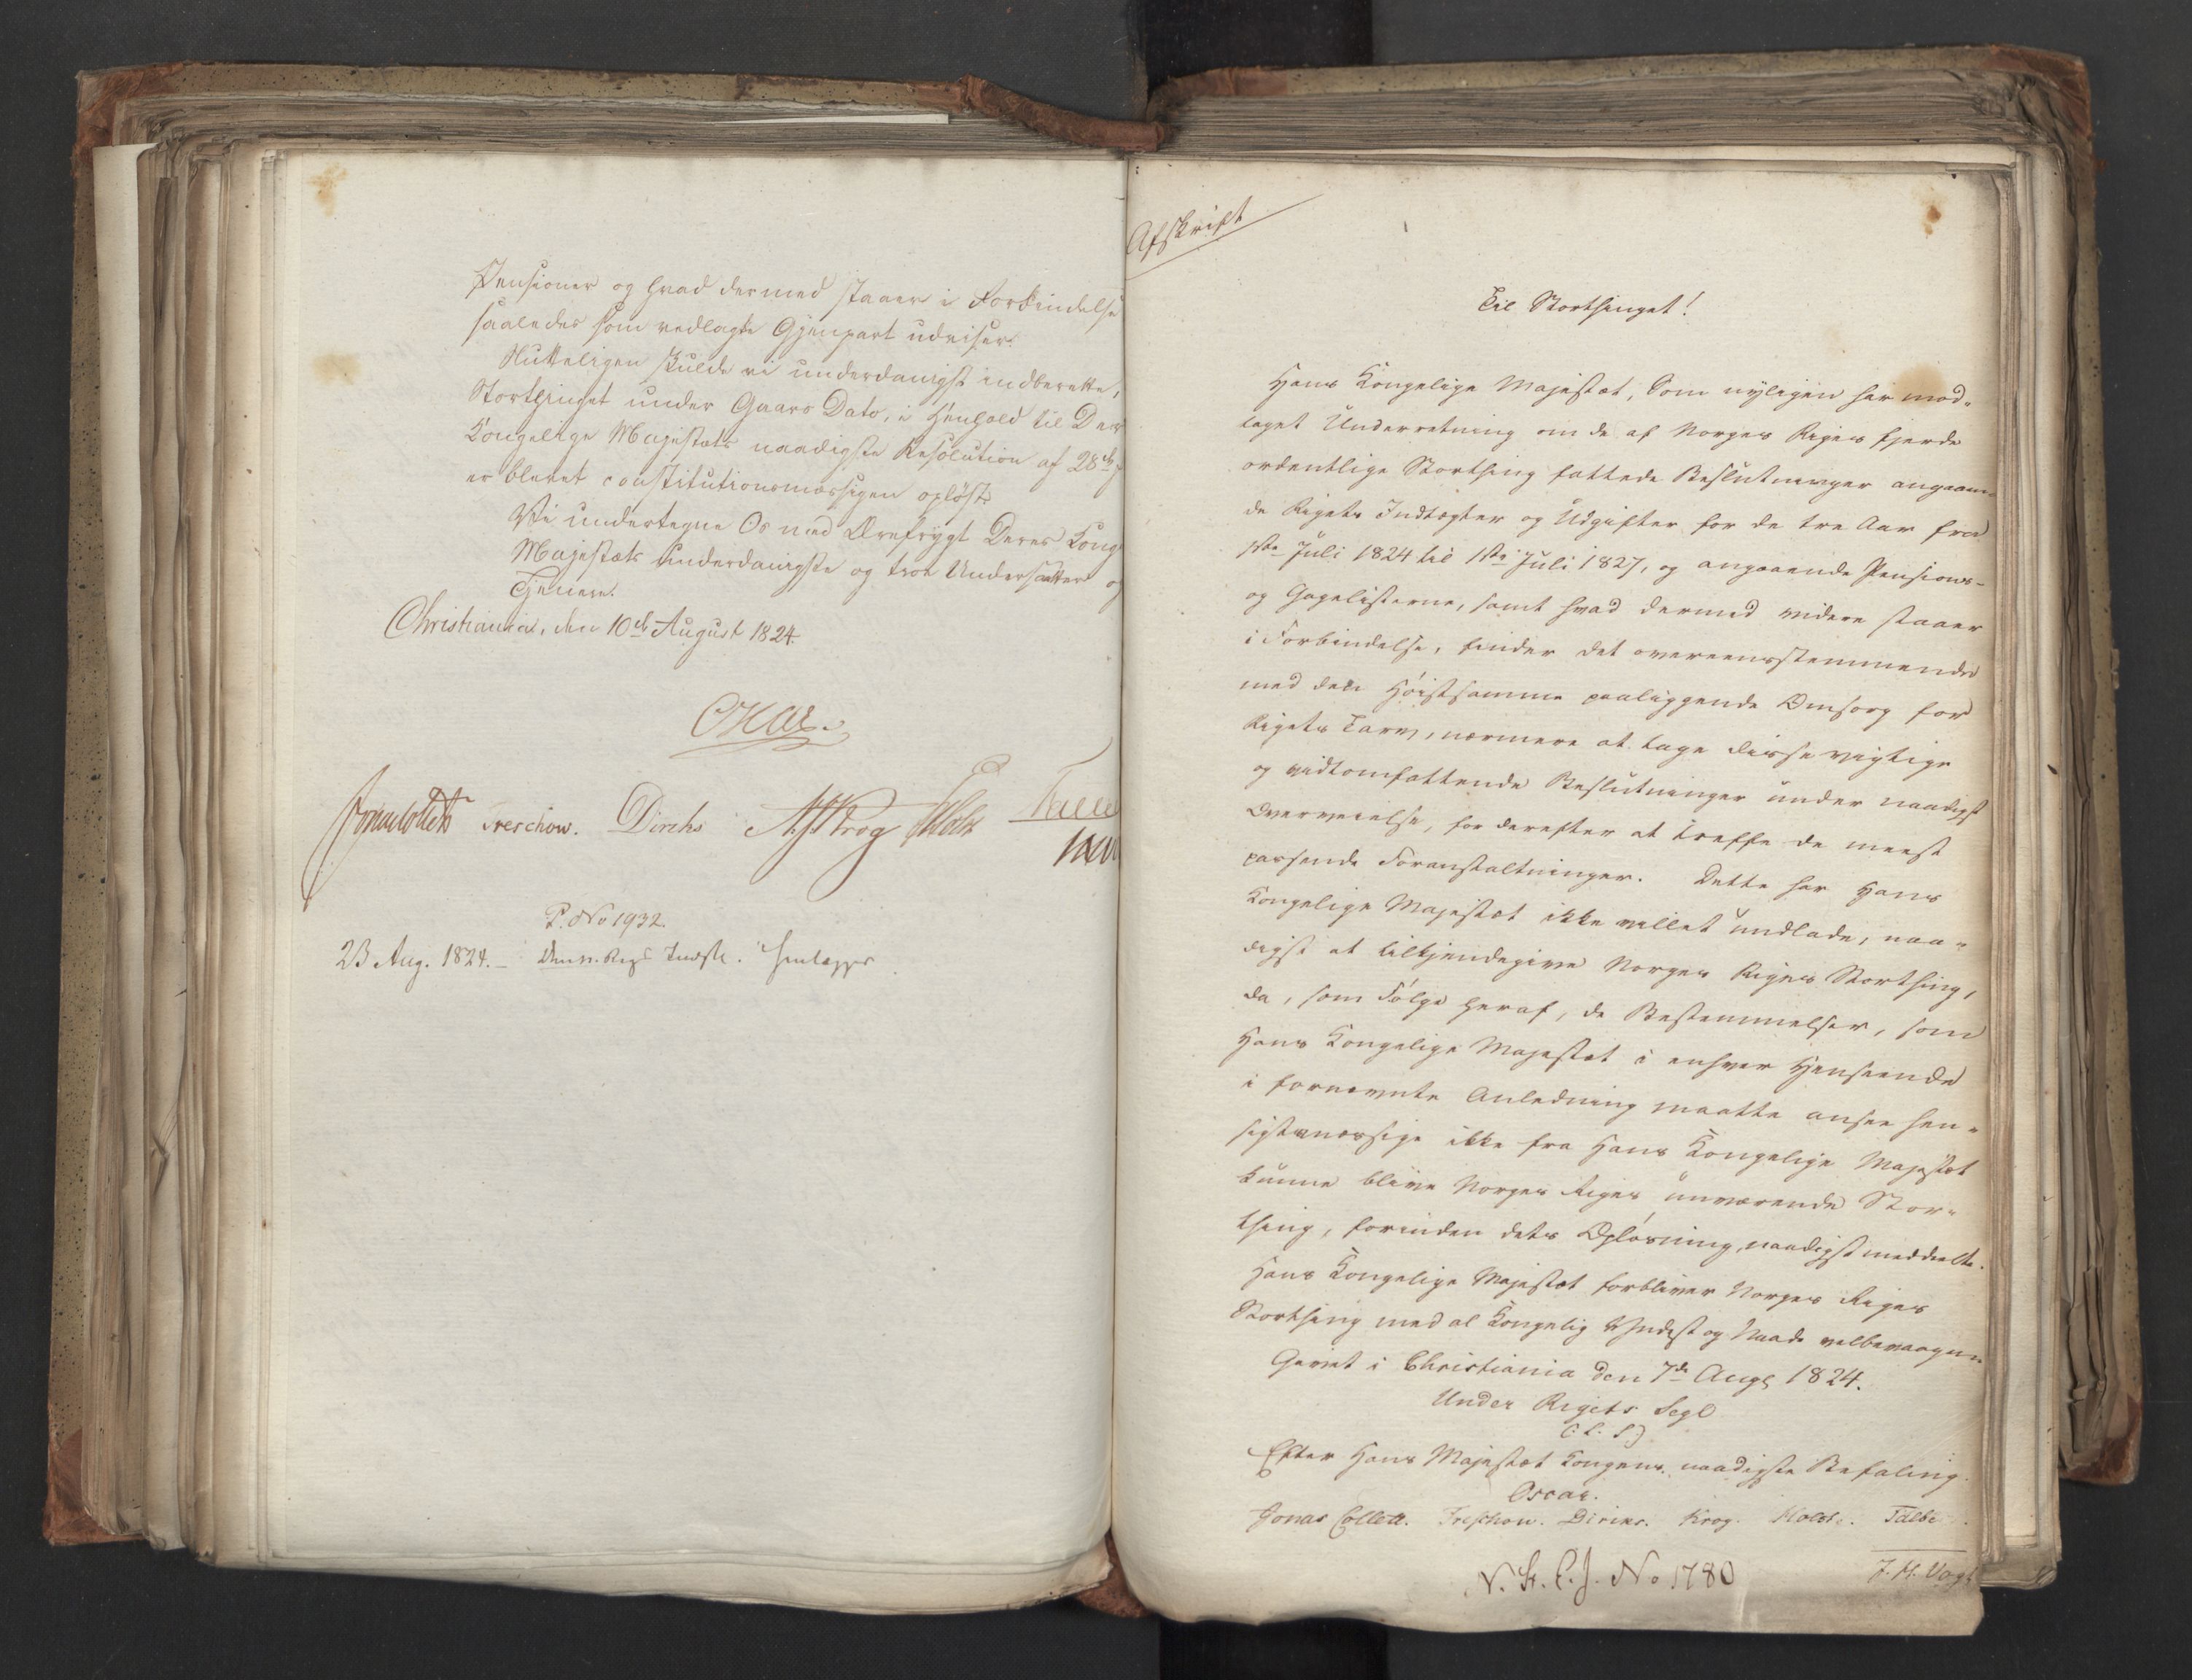 Pensioner og hvad dermed staaer i Forbindelse
saaledes som vedlagte Gjenpart udviser.
Slutteligen skulde vi underdanigst indberette,
Storthinget under Gaars Dato, i Henhold til Der
Kongelige Majestæts naadigste Resolution af 28de
er blevet constitutionsmæssigen opløst.
Vi undertegne Os med Ærefrygt Deres Kong
Majestæts underdanigste og troe Undersaatter og
Tjenere.
Christiania, den 10de August 1824.
Oscar.
Jonas Collett Treschow. Diriks Krog Holst
P. No 1932.
23 Aug. 1824. – Henlægges
Afskrift
Til Storthinget!
Hans Kongelige Majestæt, som nyligen har mod-
taget Underretning om de af Norges Riges fjerde
ordentlige Storthing fattede Beslutninger angaaen-
de Rigets Indtægter og Udgifter for de tre Aar fra
1ste Juli 1824 til 1ste Juli 1827, og angaaende Pensions-
og Gagelisterne, samt hvad dermed videre staaer
i Forbindelse, finder det overeensstemmende
med den Høistsamme paaliggende Omsorg for
Rigets Tarv, nærmere at tage disse vigtige
og vidtomfattende Beslutninger under naadigst
Overveielse, for derefter at træffe de meest
passende Foranstaltninger. Dette har Hans
Kongelige Majestæt ikke villet undlade, naa-
digst at tilkjendegive Norges Riges Storthing,
da, som Følge heraf, de Bestemmelser, som
Hans Kongelige Majestæt i enhver Henseende
i fornævnte Anledning maatte ansee hen-
sigtsmæssige ikke fra Hans Kongelige Majestæt
kunne blive Norges Riges nuværende Stor-
thing, forinden dets Opløsning, naadigst meddeelte.
Hans Kongelige Majestæt forbliver Norges Riges
Storthing med al Kongelig Yndest og Naade velbevaagen
Givet i Christiania den 7de Aug 1824.
Under Rigets Segl
(L. S.)
Efter Hans Majestæt Kongens naadigste Befaling.
Oscar.
Jonas Collett. Treschow. Diriks. Krog. Holst. Fasting
J. H. Vogt
N. St. C. J. No 1780